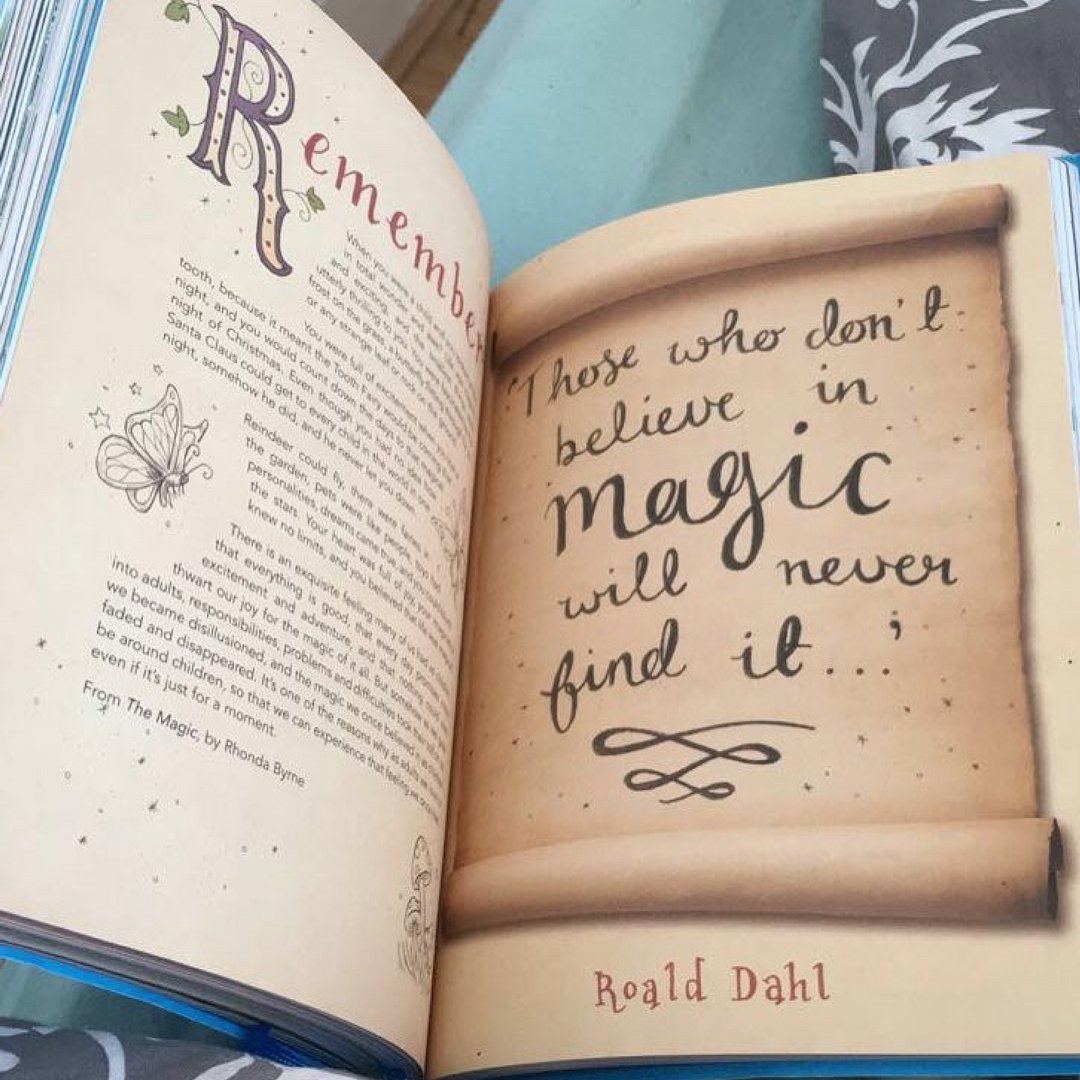 Remember
When you were a
in total wonder and
and exciting, and
utterly thrilling to you. You were
frost on the grass, a butterfly
or any strange leaf or rock
You were full of excitement when
tooth, because it meant the Tooth Fairy would be coming
night, and you would count down the days to that
night of Christmas. Even though you had no idea how
Santa Claus could get to every child in the world in
night, somehow he did, and he never let you down.
Reindeer could fly, there were fairies in
the garden, pets were like people, toys had
personalities, dreams came true, and you
the stars. Your heart was full of joy, your
knew no limits, and you believed that
There is an exquisite feeling many of us had
that everything is good, that every day promised
excitement and adventure, and that nothing
thwart our joy for the magic of it all. But somehow as
into adults, responsibilities, problems and difficulties took their
we became disillusioned, and the magic we once believed in as
faded and disappeared. It's one of the reasons why as adults we
be around children, so that we can experience that feeling we once
even if it's just for a moment.
From The Magic, by Rhonda Byrne
'Those who don't
believe in
magic
will never
find it...'
Roald Dahl